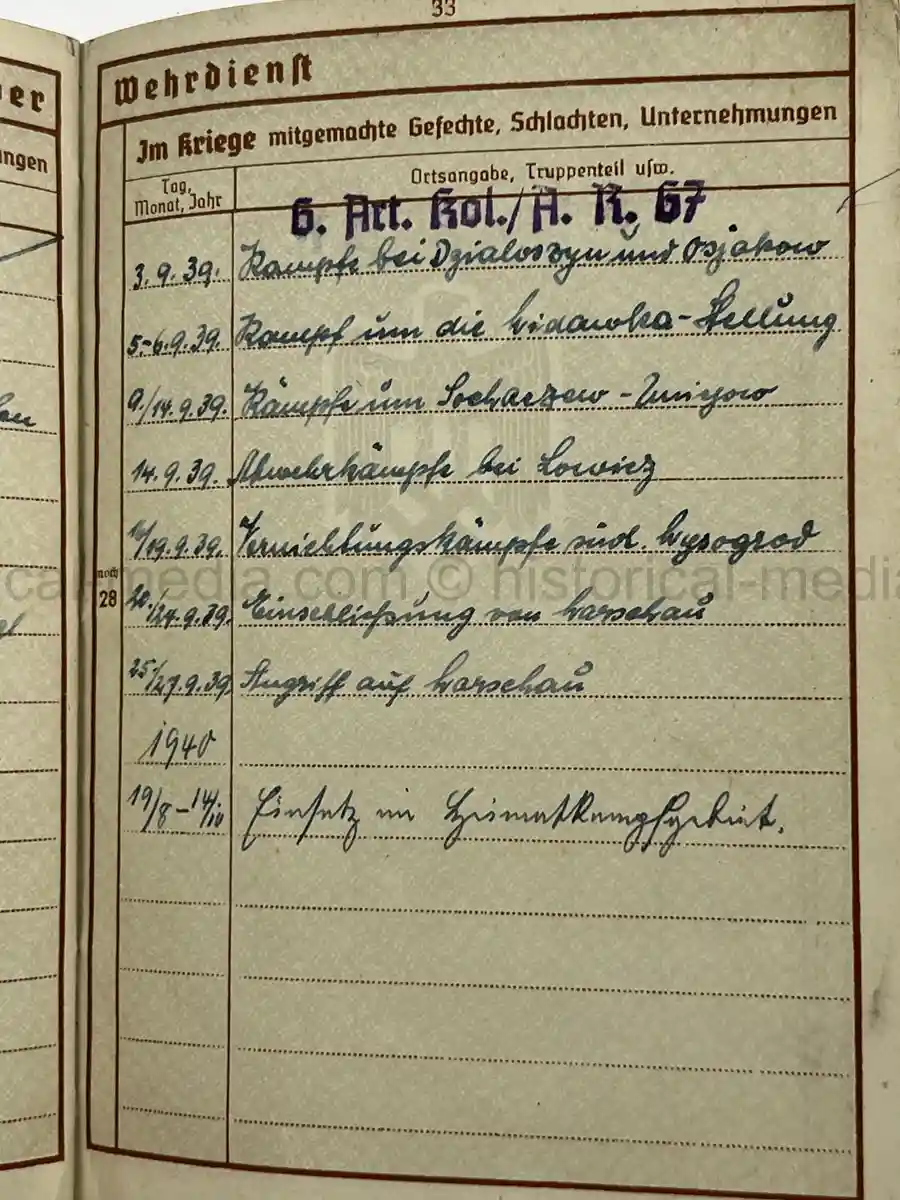 33
Wehrdienst
Im Kriege mitgemachte Gefechte, Schlachten, Unternehmungen
Tag, Monat, Jahr
Ortsangabe, Truppenteil usw.
6. Art. Kol./A. R. 67
3.9.39. Kämpfe bei Dzialoszyn und Osjakow
5.-6.9.39. Kampf um die Widawka-Stellung
9./14.9.39. Kämpfe um Sochaczew -
14.9.39. Abwehrkämpfe bei Lowicz
/19.9.39. Vernichtungskämpfe südl. Wyszogrod
20./24.9.39. Einschließung von Warschau
25./27.9.39. Angriff auf Warschau
1940
19/8 - 14/10 Einsatz im Heimatkampfgebiet.
noch
28
er
ngen
historical-media.com © historical-media